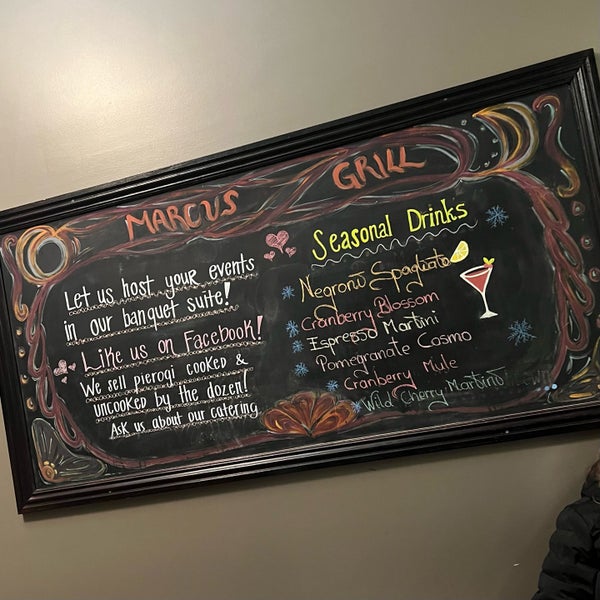 MARCUS GRILL
Let us host your events
in our banquet suite!
Like us on Facebook!
We sell pierogi cooked &
uncooked by the dozen!
Ask us about our catering
Seasonal Drinks
Negroni Spagliato
Cranberry Blossom
Espresso Martini
Pomegranate Cosmo
Cranberry Mule
Wild Cherry Martini